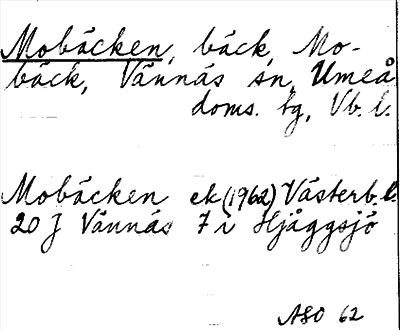 Mobäcken, bäck, Mo-
bäck, Vännäs sn, Umeå
doms. tg, Vb. l.
Mobäcken ek (1962) Västerb. l.
20 J Vännäs 7 i Hjåggsjö
ASO 62